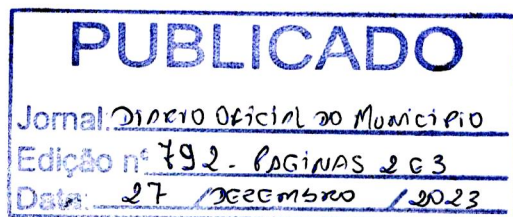 PUBLICADO
Jornal: DIARIO OFICIAL DO MUNICIPIO
Edição nº 792 - PAGINAS 2 E 3
Data: 27 / DEZEMBRO / 2023